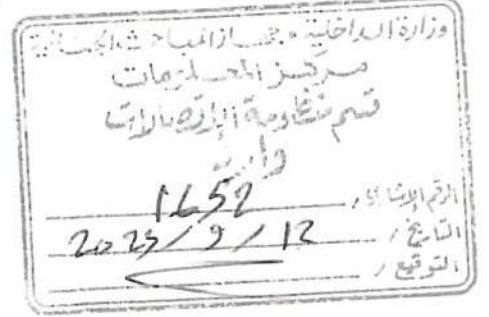 وزارة الداخلية - جهاز المباحث الجنائية
مركز المعلومات
قسم منظومة الاتصالات
وارد
الرقم الإشاري /
التاريخ / 12 / 9 /
التوقيع /